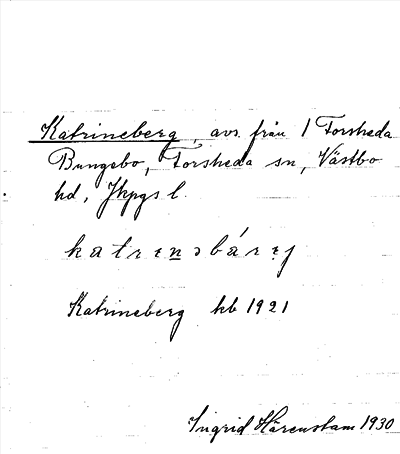 Katrineberg, avs. från 1 Forsheda
Bungebo, Forsheda sn, Västbo
hd, Jkpgs l.
katrensbárej
Katrineberg hb 1921
Ingrid Härenstam 1930